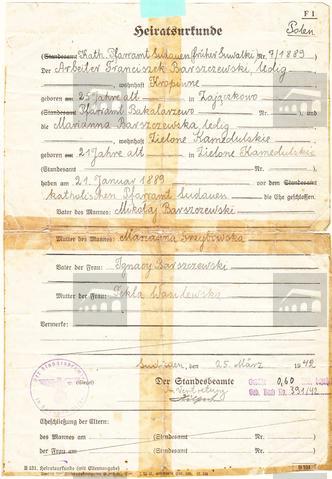 F 1
Heiratsurkunde
Polen
(Standesamt Kath. Pfarramt Sudauen früher Suwalki Nr. 7/1889)
Der Arbeiter Franciszek Barszczewski, ledig
, wohnhaft Kropiwne
geboren am 25 Jahre alt in Zajączkowo
(Standesamt Pfarramt Bakalarzewo Nr. ) und
die Marianna Barszczewska ledig
, wohnhaft Zielone Kamedulskie
geboren am 21 Jahre alt in Zielone Kamedulskie
(Standesamt Nr. )
haben am 21. Januar 1889 vor dem Standesamt
katholischen Pfarramt Sudauen die Ehe geschlossen.
Vater des Mannes: Mikołaj Barszczewski
Mutter des Mannes: Marianna Grzybowska
Vater der Frau: Ignacy Barszczewski
Mutter der Frau: Tekla Wasilewska
Vermerke:
Sudauen, den 25. März 1942
(Siegel) Der Standesbeamte
In Vertretung
0,60
Geb. Buch No. 391/42
Eheschließung der Eltern:
des Mannes am (Standesamt Nr. )
der Frau am (Standesamt Nr. )
B 131. Heiratsurkunde (mit Elternangabe)
B 131